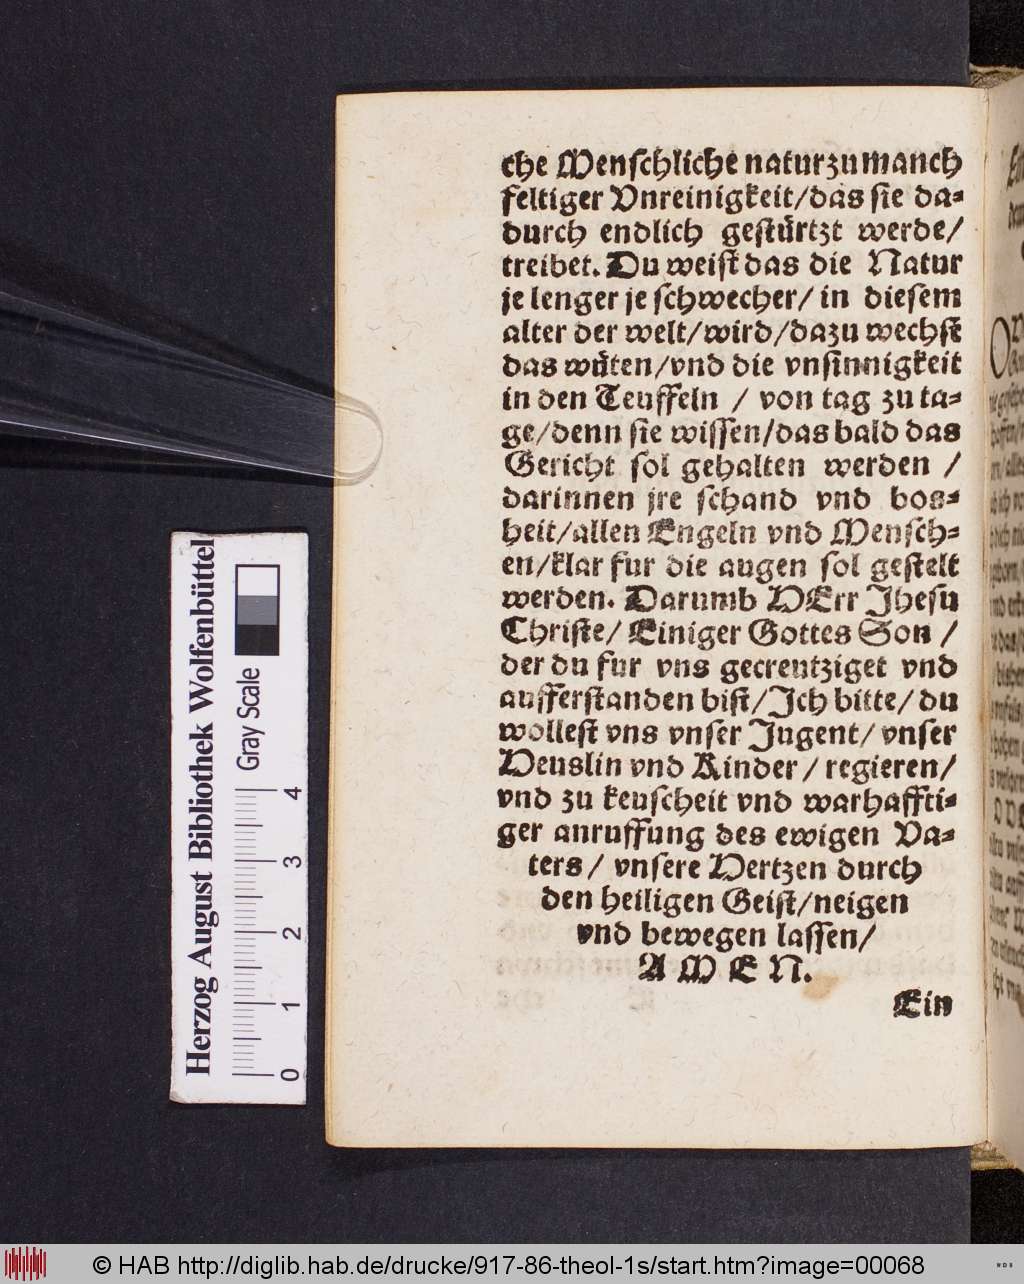 che Menschliche natur zu manch
feltiger Vnreinigkeit/das sie da-
durch endlich gestürtzt werde/
treibet. Du weist das die Natur
je lenger je schwecher/ in diesem
alter der welt/wird/dazu wechst
das wüten/vnd die vnsinnigkeit
in den Teuffeln / von tag zu ta-
ge/denn sie wissen/das bald das
Gericht sol gehalten werden /
darinnen jre schand vnd bos-
heit/allen Engeln vnd Mensch-
en/klar fur die augen sol gestelt
werden. Darumb HErr Jhesu
Christe/ Einiger Gottes Son /
der du fur vns gecreutziget vnd
aufferstanden bist/Jch bitte/ du
wollest vns vnser Jugent/ vnser
Heuslin vnd Kinder/ regieren/
vnd zu keuscheit vnd warhaffti-
ger anruffung des ewigen Va-
ters / vnsere Hertzen durch
den heiligen Geist/neigen
vnd bewegen lassen/
A M E N.
Ein
Herzog August Bibliothek Wolfenbüttel
Gray Scale
0 1 2 3 4
© HAB http://diglib.hab.de/drucke/917-86-theol-1s/start.htm?image=00068